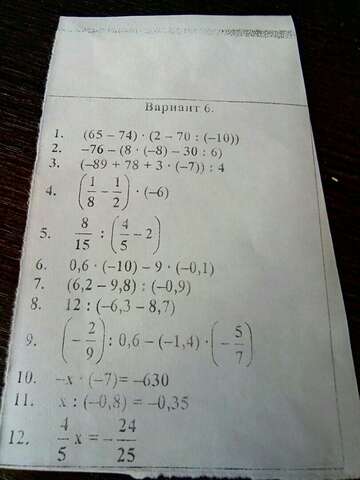 Вариант 6.
1. (65 – 74) · (2 – 70 : (–10))
2. –76 – (8 · (–8) – 30 : 6)
3. (–89 + 78 + 3 · (–7)) : 4
4. (1/8 – 1/2) · (–6)
5. 8/15 : (4/5 – 2)
6. 0,6 · (–10) – 9 · (–0,1)
7. (6,2 – 9,8) : (–0,9)
8. 12 : (–6,3 – 8,7)
9. (– 2/9) : 0,6 – (–1,4) · (– 5/7)
10. –x · (–7)= –630
11. x : (–0,8) = –0,35
12. 4/5 x = – 24/25